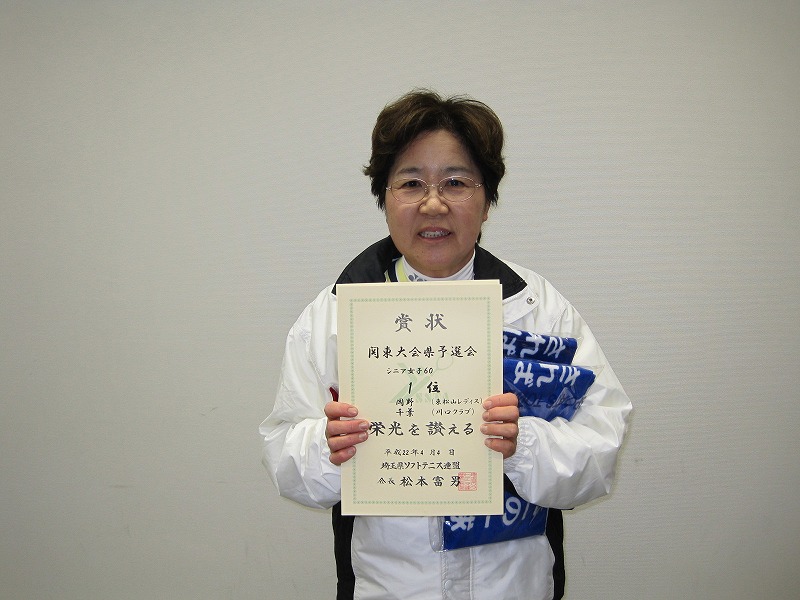 賞状
関東大会県予選会
シニア女子60
1位
岡野 (東松山レディス)
千葉 (川口クラブ)
栄光を讃える
平成22年4月4日
埼玉県ソフトテニス連盟
会長 松本富男
さんぽ